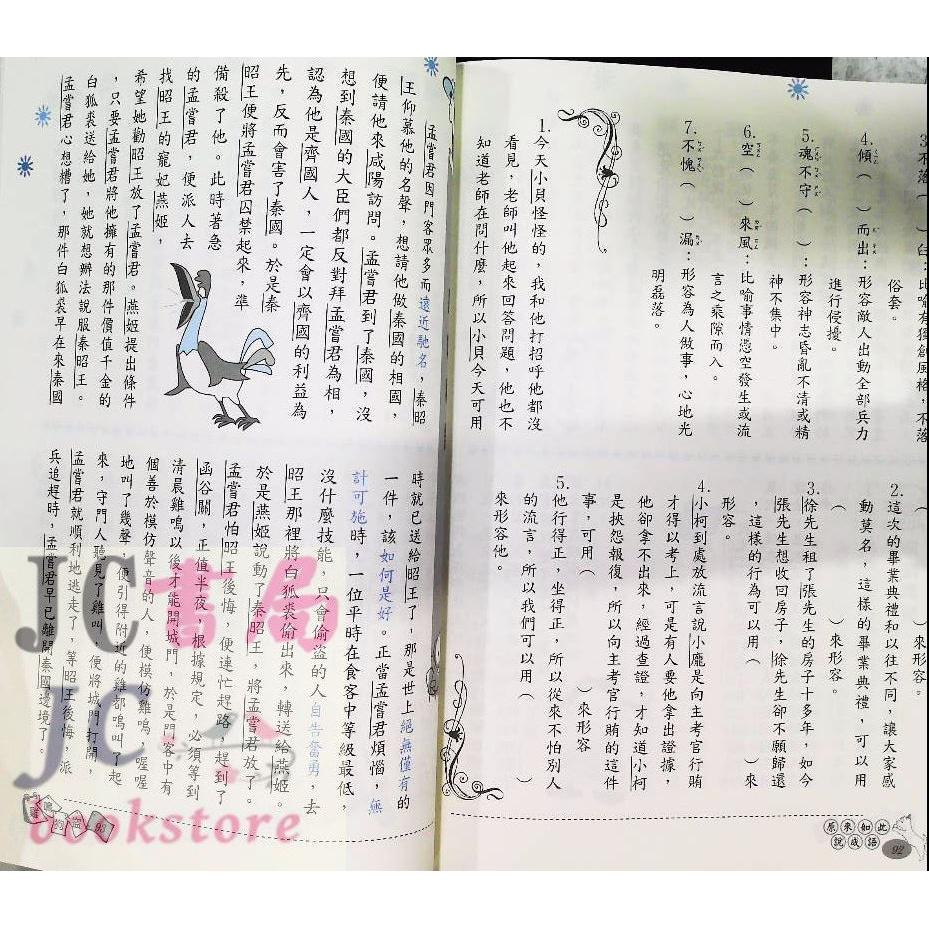 3.不落（　）臼：比喻有獨創風格，不落
俗套。
4.傾（　）而出：形容敵人出動全部兵力
進行侵擾。
5.魂不守（　）：形容神志昏亂不清或精
神不集中。
6.空（　）來風：比喻事情憑空發生或流
言之乘隙而入。
7.不愧（　）漏：形容為人做事，心地光
明磊落。
1.今天小貝怪怪的，我和他打招呼他都沒
看見，老師叫他起來回答問題，他也不
知道老師在問什麼，所以小貝今天可用
（　）來形容。
2.這次的畢業典禮和以往不同，讓大家感
動莫名，這樣的畢業典禮，可以用
（　）來形容。
3.徐先生租了張先生的房子十多年，如今
張先生想收回房子，徐先生卻不願歸還
，這樣的行為可以用（　）來
形容。
4.小柯到處放流言說小龐是向主考官行賄
才得以考上，可是有人要他拿出證據，
他卻拿不出來，經過查證，才知道小柯
是挾怨報復，所以向主考官行賄的這件
事，可用（　）來形容
5.他行得正，坐得正，所以從來不怕別人
的流言，所以我們可以用（　）
來形容他。
原來如此
說成語
92
孟嘗君因門客眾多而遠近馳名，秦昭
王仰慕他的名聲，想請他做秦國的相國，
便請他來咸陽訪問。孟嘗君到了秦國，沒
想到秦國的大臣們都反對拜孟嘗君為相，
認為他是齊國人，一定會以齊國的利益為
先，反而會害了秦國。於是秦
昭王便將孟嘗君囚禁起來，準
備殺了他。此時著急
的孟嘗君，便派人去
找昭王的寵妃燕姬，
希望她勸昭王放了孟嘗君。燕姬提出條件
，只要孟嘗君將他擁有的那件價值千金的
白狐裘送給她，她就想辦法說服秦昭王。
孟嘗君心想糟了，那件白狐裘早在來秦國
時就已送給昭王了，那是世上絕無僅有的
一件，該如何是好。正當孟嘗君煩惱，無
計可施時，一位平時在食客中等級最低，
沒什麼技能，只會偷盜的人自告奮勇，去
昭王那裡將白狐裘偷出來，轉送給燕姬。
於是燕姬說動了秦昭王，將孟嘗君放了。
孟嘗君怕昭王後悔，便連忙趕路，趕到了
函谷關，正值半夜，根據規定，必須等到
清晨雞鳴以後才能開城門，於是門客中有
個善於模仿聲音的人，便模仿雞鳴，喔喔
地叫了幾聲，便引得附近的雞都鳴叫了起
來，守門人聽見了雞叫，便將城門打開，
孟嘗君就順利地逃走了，等昭王後悔，派
兵追趕時，孟嘗君早已離開秦國邊境了。
JC書局
JC
bookstore